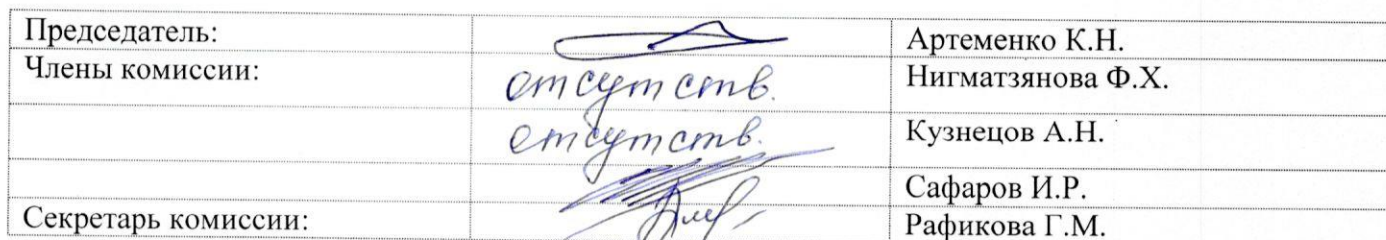 Председатель: Артеменко К.Н.
Члены комиссии: отсутств. Нигматзянова Ф.Х.
отсутств. Кузнецов А.Н.
Сафаров И.Р.
Секретарь комиссии: Рафикова Г.М.